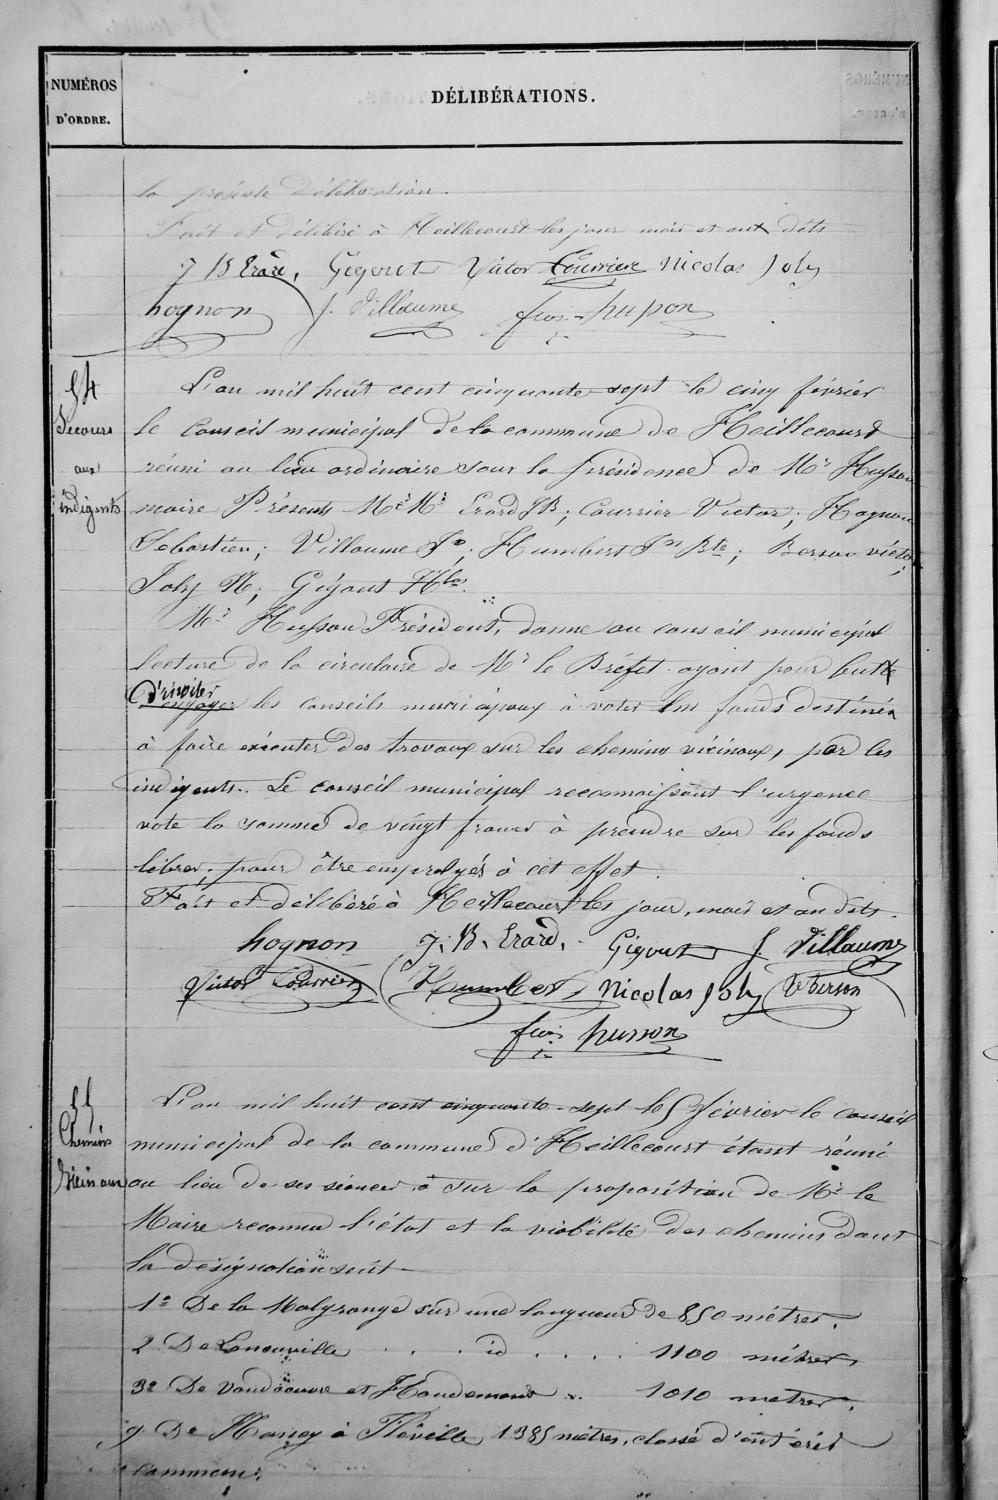 NUMÉROS
D'ORDRE.
DÉLIBÉRATIONS.
la présente délibération.
Fait et délibéré à Heillecourt les jour mois et an dits
J B Erard, Gegout Victor Courrier Nicolas Joly
hognon J. Villaume husson
54
Secours
aux
indigents
L'an mil huit cent cinquante sept le cinq février
le Conseil municipal de la commune de Heillecourt
réuni au lieu ordinaire sous la présidence de Mr Husson
maire Présents Mrs Mrs Erard JB; Courrier Victor; Hognon
Sebastien; Villaume Jn; Humbert Jn Bte; Berson victor;
Joly N; Gégout Nlas.
Mr Husson Président, donne au conseil municipal
lecture de la circulaire de Mr le Préfet ayant pour butte
d'inviter
d'engager les conseils municipaux à voter les fonds destinés
à faire exécuter des travaux sur les chemins vicinaux, par les
indigents. Le conseil municipal reconnaissant l'urgence
vote la somme de vingt francs à prendre sur les fonds
libres, pour être employés à cet effet.
Fait et délibéré à Heillecourt les jour, mois et an dits.
hognon J. B. Erard, Gigout J. Villaume
Victor Courrier Humbert Nicolas Joly V Berson
husson
55
Chemins
vicinaux
L'an mil huit cent cinquante-sept le 5 février le conseil
municipal de la commune d'Heillecourt étant réuni
au lieu de ses séances à sur la proposition de Mr le
Maire reconnu l'état et la viabilité des chemins dont
la désignation suit
1º De la Malgrange sur une longueur de 850 mètres.
2 De Laneuville . . . id . . . . 1100 mètres
3º De Vandoeuvre et Houdemont .. 1010 mètres.
De Nancy à Fléville 1385 mètres, classé d'intérêt
commun.